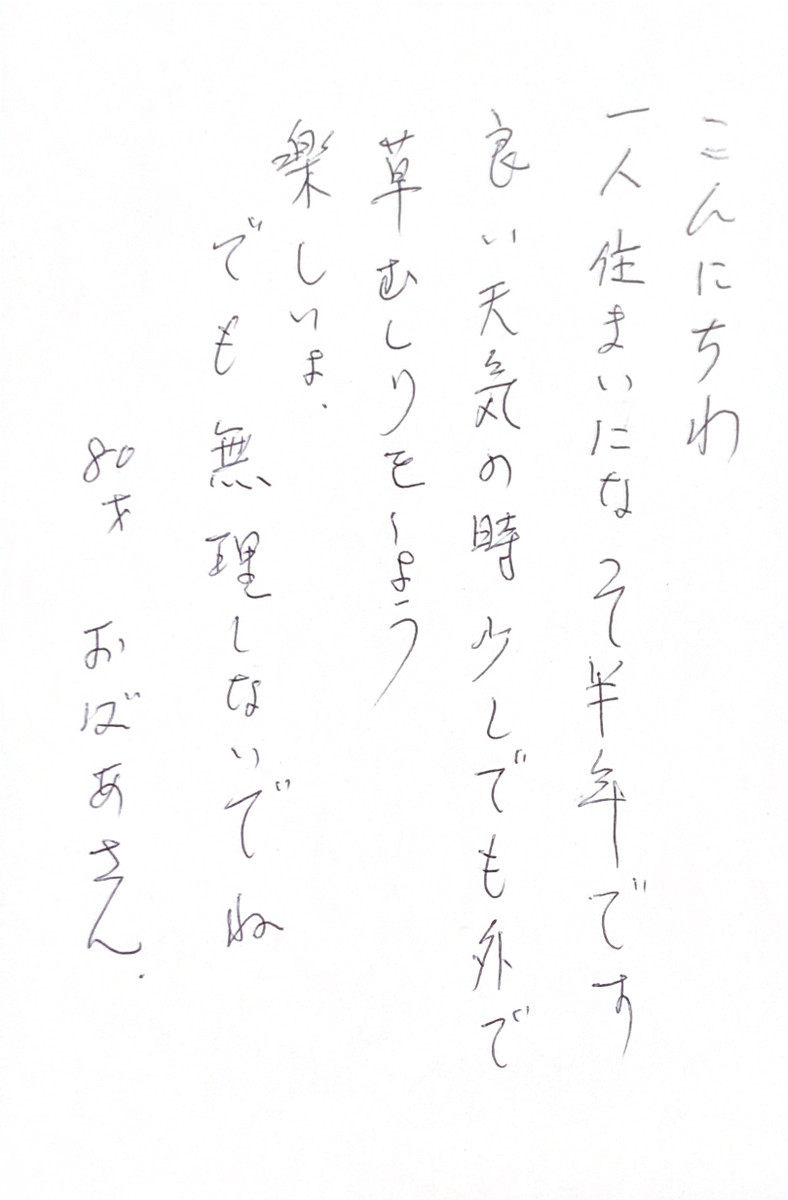 こんにちわ
一人住まいになって半年です
良い天気の時少しでも外で
草むしりをしよう
楽しいよ.
でも無理しないでね
80才 おばあさん.